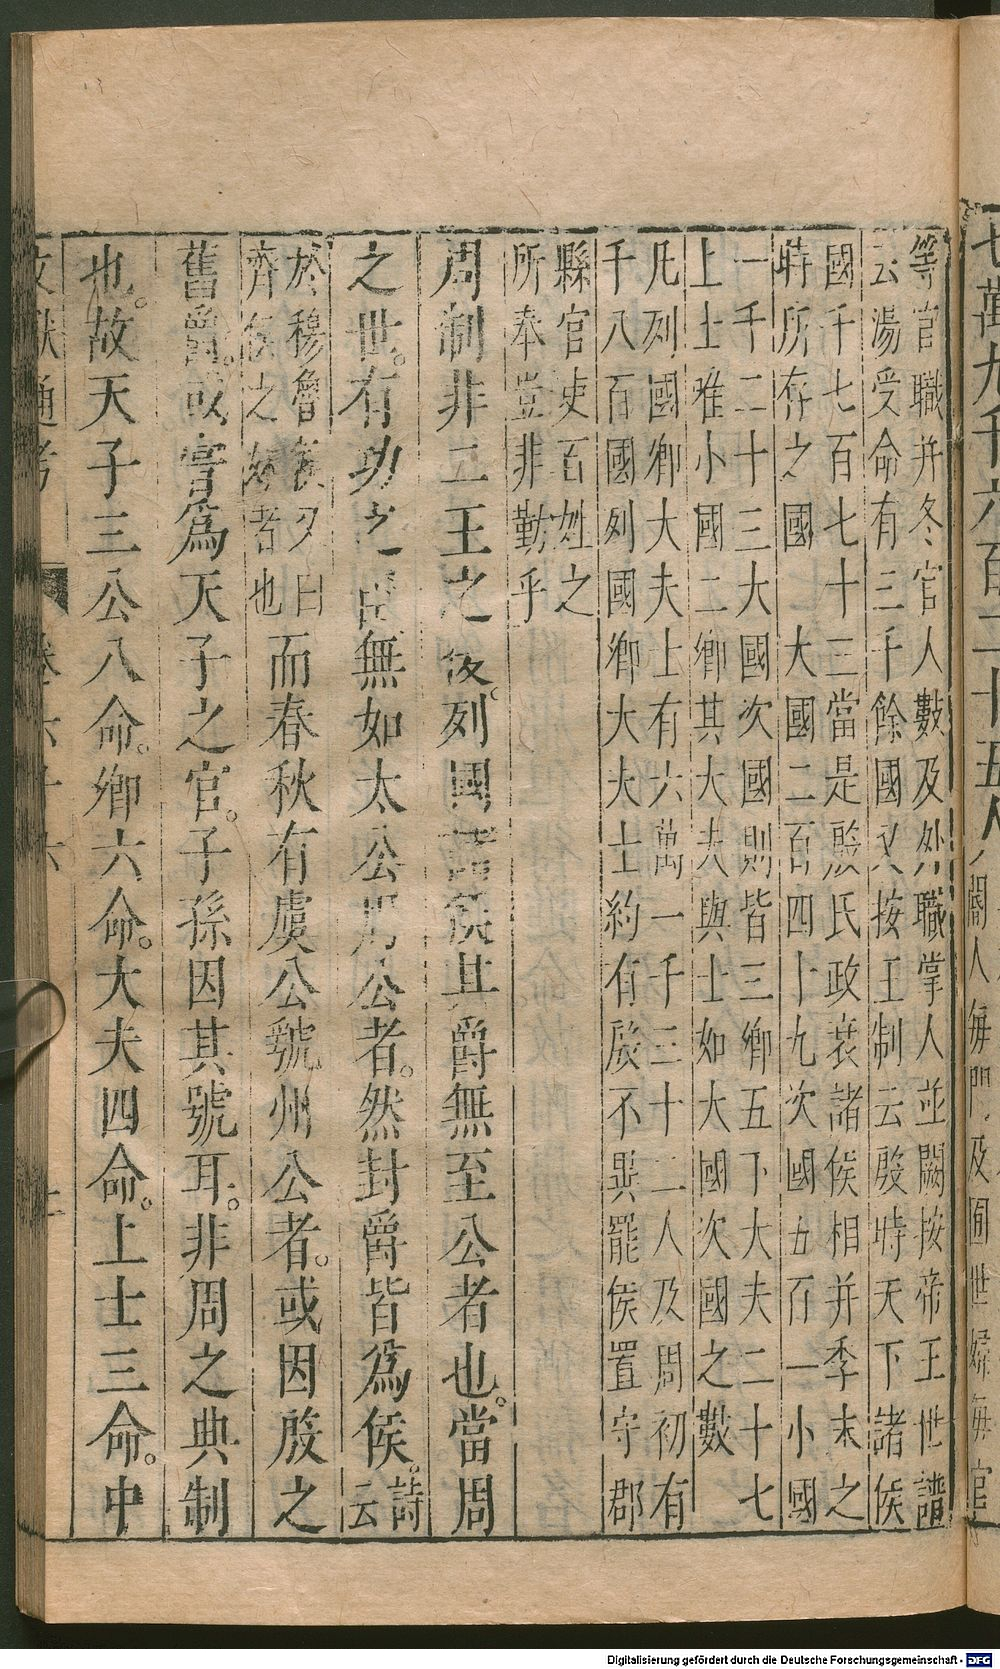 等官職并冬官人數及外職掌人並闕按帝王世譜
云湯受命有三千餘國又按王制云殷時天下諸侯
國千七百七十三當是殷氏政衰諸侯相并季末之
時所存之國 大國二百四十九次國五百一小國
一千二十三大國次國則皆三卿五下大夫二十七
上士唯小國二卿其大夫與士如大國次國之數
凡列國卿大夫上有六萬一千三十二人及周初有
千八百國列國卿大夫士約有 不 罷侯置守郡
縣官吏百姓之
所奉豈非勤乎
周制非二王之後列國諸侯其爵無至公者也當周
之世有功之臣無如太公周公者然封爵皆為侯詩
云
於穆魯侯又曰
齊侯之 者也
而春秋有虞公號州公者或因殷之
舊爵或嘗為天子之官子孫因其號耳非周之典制
也故天子三公八命卿六命大夫四命上士三命中
文獻通考 卷六十六
七萬九千六百二十五人
閽人每門及囿世婦每宮
Digitalisierung gefördert durch die Deutsche Forschungsgemeinschaft - DFG